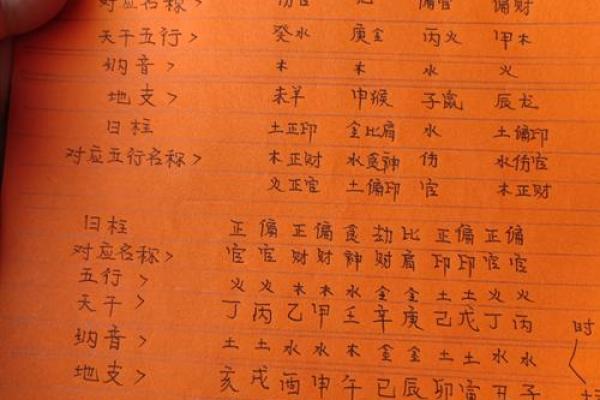 对应名称> 伤官 偏官 偏财
天干五行> 癸水 庚金 丙火 甲木
纳音> 木 木 水 火
地支> 未羊 申猴 子鼠 辰龙
日柱 土正印 金比肩 水 土偏印
对应五行名称> 木正财 水食神 伤 水伤官
火正官 土偏印 官 木正财
日柱 正 偏 正 偏 食 劫 比 正 偏 正 偏
对应名称> 官 官 财 财 神 财 肩 印 印 官 官
五行> 火 火 木 木 水 金 金 土 土 火 火
天干> 丁 丙 乙 甲 壬 辛 庚 己 戊 丁 丙
纳音> 土 土 水 水 木 金 金 土 土 水 水
时
地支> 亥 戌 酉 申 午 巳 辰 卯 寅 丑 子